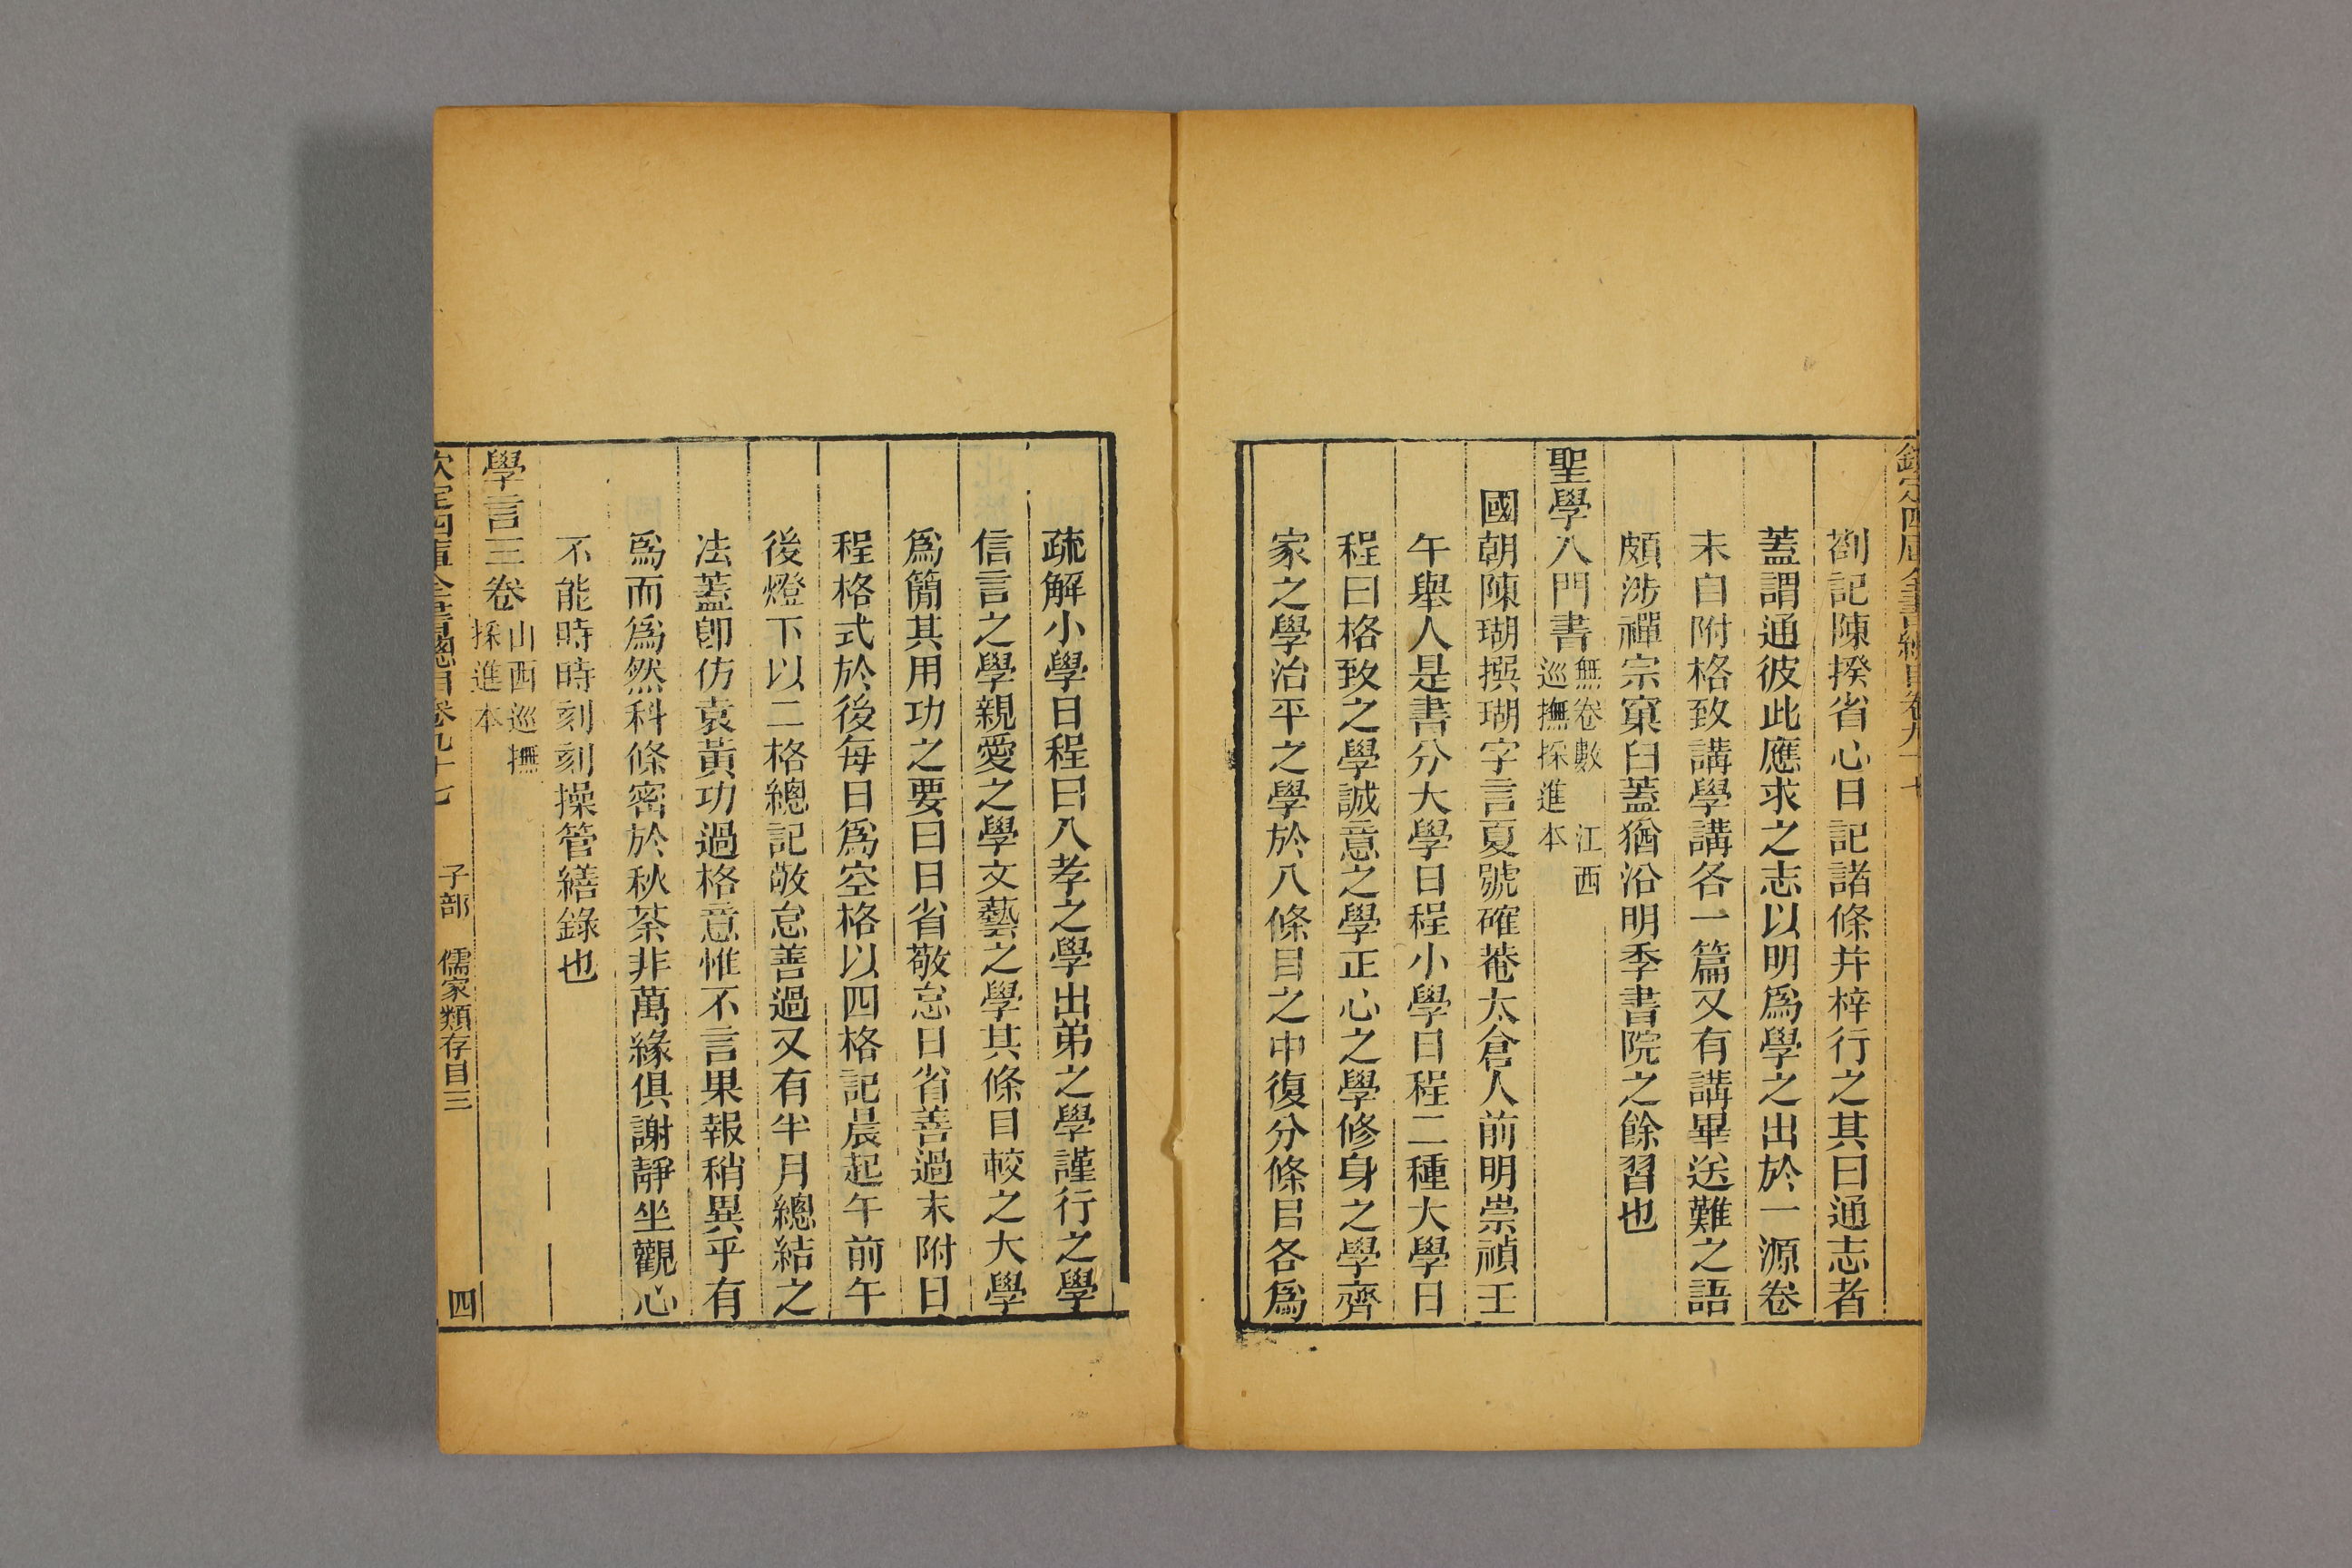 欽定四庫全書總目卷九十七
劄記陳揆省心日記諸條并梓行之其曰通志者
蓋謂通彼此應求之志以明爲學之出於一源卷
末自附格致講學講各一篇又有講畢送難之語
頗涉禪宗窠臼蓋猶沿明季書院之餘習也
聖學入門書無卷數 江西
巡撫採進本
國朝陳瑚撰瑚字言夏號確菴太倉人前明崇禎壬
午舉人是書分大學日程小學日程二種大學日
程曰格致之學誠意之學正心之學修身之學齊
家之學治平之學於八條目之中復分條目各爲
疏解小學日程曰入孝之學出弟之學謹行之學
信言之學親愛之學文藝之學其條目較之大學
爲簡其用功之要曰日省敬怠日省善過末附日
程格式於後每日爲空格以四格記晨起午前午
後燈下以二格總記敬怠善過又有半月總結之
法蓋卽仿袁黃功過格意惟不言果報稍異乎有
爲而爲然科條密於秋荼非萬緣俱謝靜坐觀心
不能時時刻刻操管繕錄也
學言三卷山西巡撫
採進本
欽定四庫全書總目卷九十七 子部 儒家類存目三 四